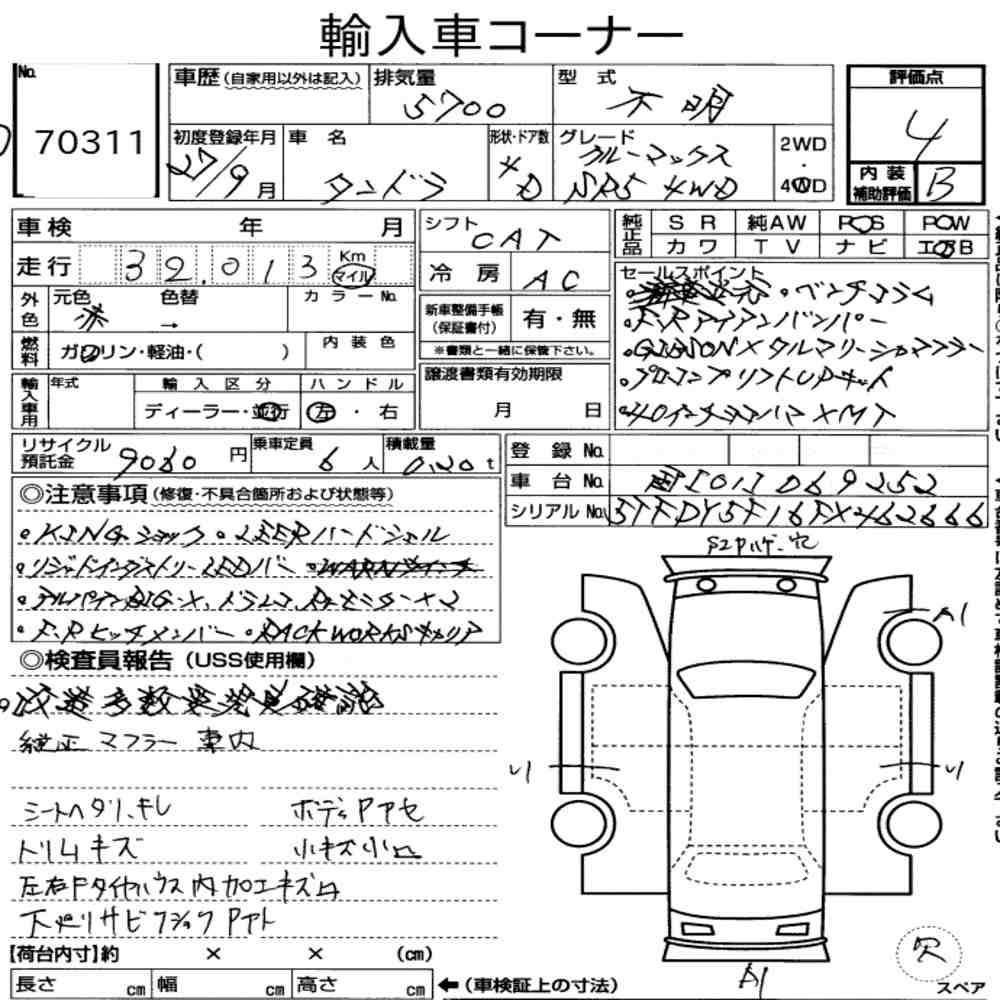 輸入車コーナー
No.
70311
車歴(自家用以外は記入)
排気量
5700
型式
不明
評価点
4
内装
補助評価
B
初度登録年月
27/9月
車名
タンドラ
形状・ドア数
4D
グレード
クルーマックス
SR5 4WD
2WD
・
4WD
車検 年 月
走行 32.013 Km マイル
外色
元色 色替
赤 →
カラーNo.
燃料
ガソリン・軽油・( )
内装色
輸入車用
年式
輸入区分
ディーラー・並行
ハンドル
左・右
シフト
CAT
冷房
AC
新車整備手帳
(保証書付)
有・無
※書類と一緒に保管下さい。
譲渡書類有効期限
月 日
純正品
SR 純AW PS PW
カワ TV ナビ エアB
セールスポイント
・ベンチコラム
・F.Rアイアンバンパー
・GIBSONメタルマリーシャマフラー
・プロコンプリフトUPキット
・40インチヨコハマXMT
リサイクル
預託金
9080円
乗車定員
6人
積載量
0.20t
登録No.
車台No.
シリアルNo.
5TFDY5F16FX462666
◎注意事項(修復・不具合箇所および状態等)
・KINGショック
・リジッドインダストリーLEDバー
・アルパインBIG-X、ドラレコ
・F.Rヒッチメンバー・RACK WORKSキャリア
◎検査員報告(USS使用欄)
純正マフラー車内
シートヘタリ、キレ
ボディPアセ
トリムキズ
小キズ小凸
左右Fタイヤハウス内加工キズ凹
下廻りサビ
A1
A1
欠
スペア
【荷台内寸】約 × × (cm)
長さ cm 幅 cm 高さ cm
←(車検証上の寸法)